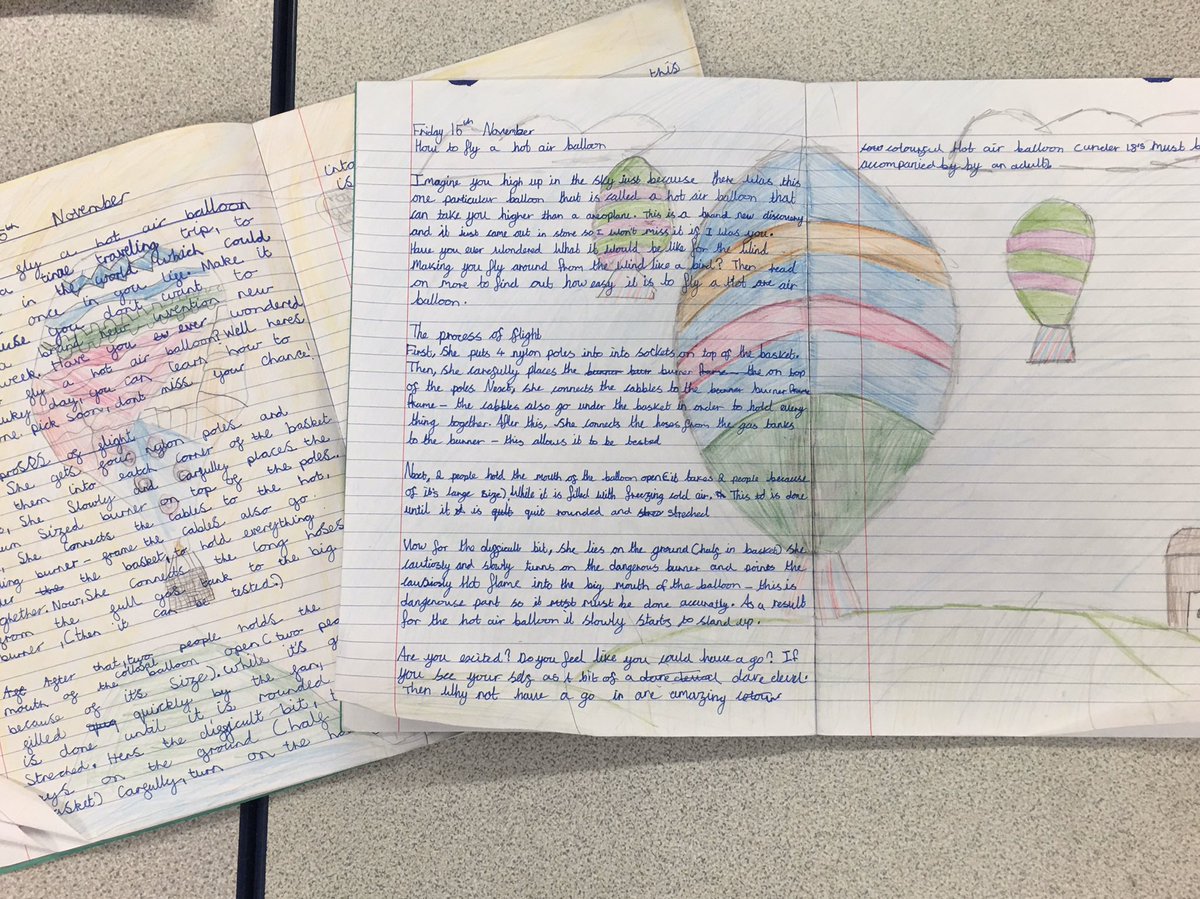 November
fly a hot air balloon
a time traveling trip, to
in the world which could
once in you lige. Make it
you don't want to
brand new invention new
week. Have you ever wondered
fly a hot air balloon? Well heres
lucky day, you can learn how to
pick soon, dont miss your chance!
proses of flight
She gets four nylon poles and
them into eatch corner of the basket
She Slowly and carfully places the
Sized burner on top of the poles.
She connects the cables to the hot,
burner - frame the cables also go
the basket, to hold everything
together. Now, She connects the long hoses
from the full gas tank to the big
burner, (then it can be tested.)
After that, two people holds the
mouth of the colosal balloon open (two peo
because of it's Size). While it's g
filled quickly by the fan,
is done until it is rounded
Streched. Hers the difficult bit,
on the ground (half
basket) Carfully, turn on the ha
this
into
is
Friday 15th November
How to fly a hot air balloon
Imagine you high up in the sky just because there was this
one particular balloon that is called a hot air balloon that
can take you higher than a aroplane. This is a brand new discovery
and it just came out in store so I won't miss it if I was you.
Have you ever wondered what it would be like for the wind
Making you fly around from the wind like a bird? Then read
on more to find out how easy it is to fly a Hot are air
balloon.
The process of flight
First, She puts 4 nylon poles into into sockets on top of the basket.
Then, she carefully places the burner burner frame - the on top
of the poles Next, she connects the cabbles to the burner burner frame
frame - the cabbles also go under the basket in order to hold every
thing together. After this, she connects the hoses from the gas banks
to the burner - this allows it to be tested
Next, 2 people hold the mouth of the balloon open (it takes 2 people because
of it's large size) While it is filled with freezing cold air. This is done
until it is quit rounded and streched
Now for the difficult bit, she lies on the ground (half in basket) she
cautiosly and slowly turns on the dangerous burner and points the
cautiosly Hot flame into the big mouth of the balloon - this is
dangerouse part so it must must be done accuratly. As a result
for the hot air balloon it slowly starts to stand up.
Are you excited? Do you feel like you could have a go? If
you see your self as a bit of a dare devel.
Then Why not have a go in are amazing colour
colourful Hot air balloon (under 18's Must b
accompanied by by an adult)